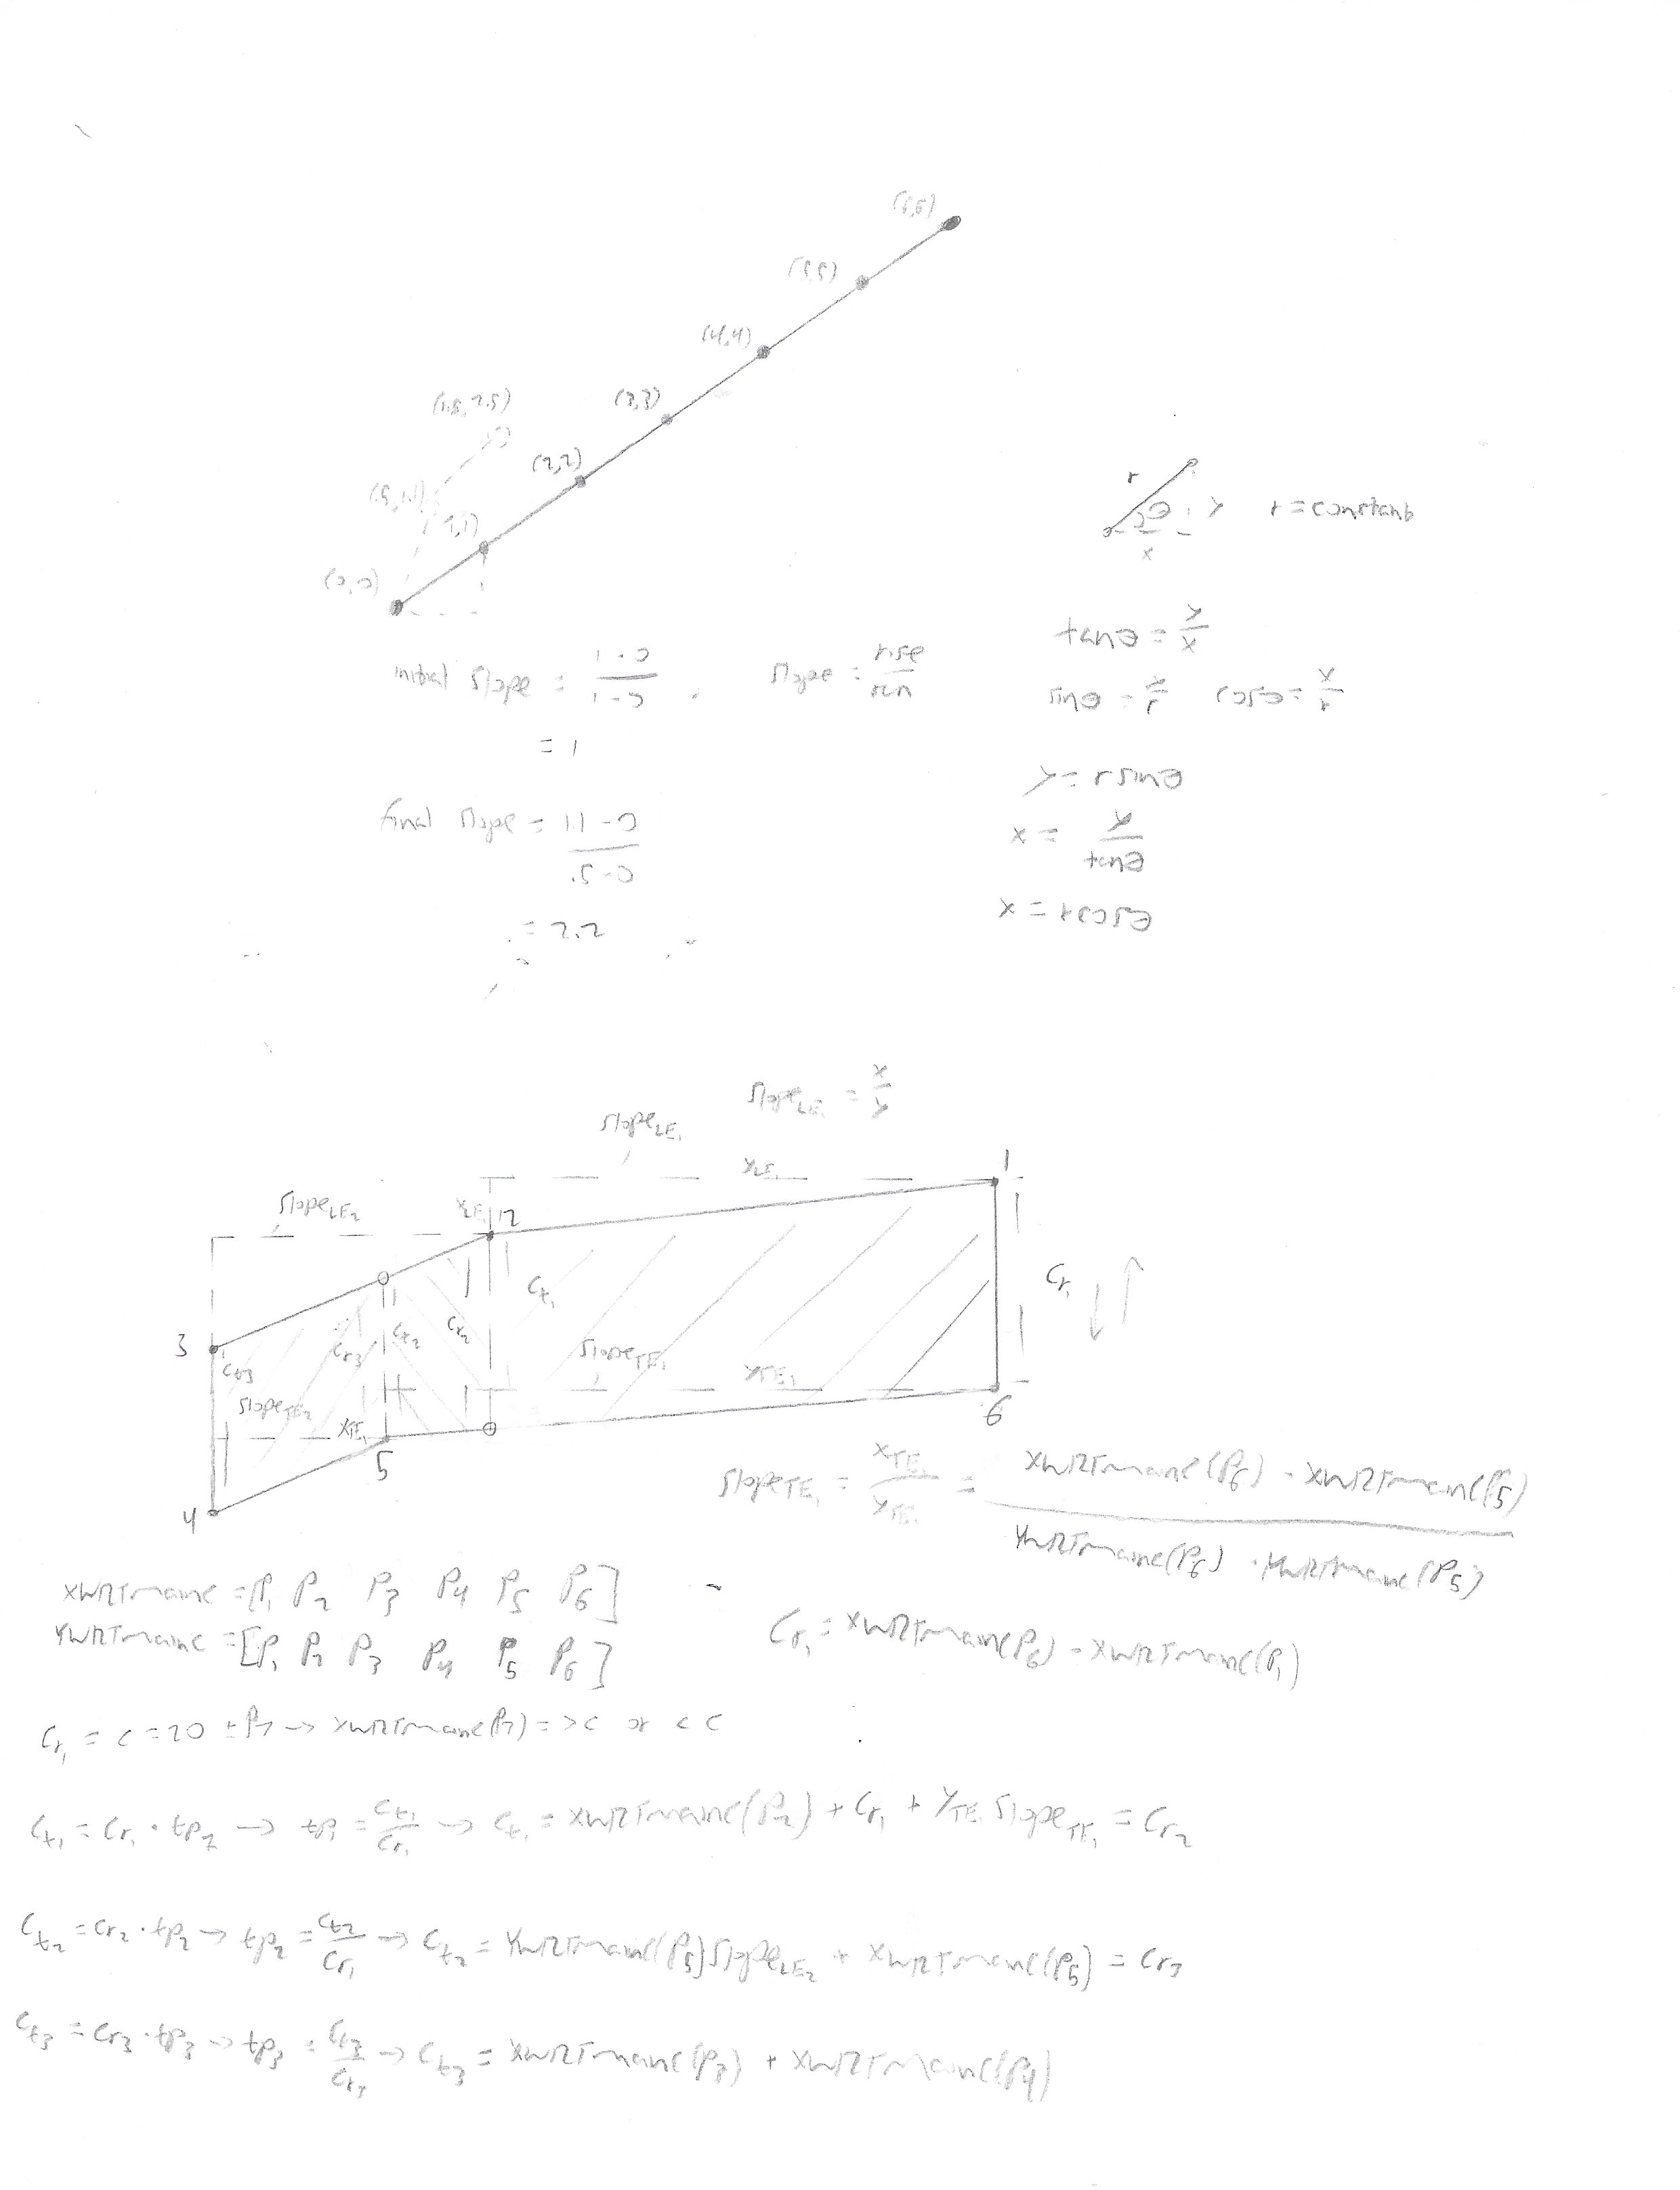 (6,6)
(5,5)
(4,4)
(3,3)
(1.5, 2.5)
(2,2)
(.5, 1.1)
(1,1)
(0,0)
initial slope = (1-0)/(1-0)
slope = rise/run
= 1
final slope = (1.1-0)/(.5-0)
= 2.2
r θ y x
r = constant
tanθ = y/x
sinθ = y/r cosθ = x/r
y = r sinθ
x = y/tanθ
x = r cosθ
slope_LE₁ = x/y
slope_LE₁
y_LE₁
1
slope_LE₂
x_LE₁
2
C_t₁
C_r₁
3
C_t₂
C_r₂
C_r3
C_t3
slope_TE₁
y_TE₁
slope_TE₂
x_TE₁
5
6
4
slope_TE₁ = x_TE₁/y_TE₁ = (xWRTmainc(P₆) - xWRTmainc(P₅))/(yWRTmainc(P₆) - yWRTmainc(P₅))
xWRTmainc = [P₁ P₂ P₃ P₄ P₅ P₆]
yWRTmainc = [P₁ P₂ P₃ P₄ P₅ P₆]
C_r₁ = xWRTmainc(P₆) - xWRTmainc(P₁)
C_r₁ = c = 20 ± P₇ → xWRTmainc(P₇) = >c or <c
C_t₁ = C_r₁ · tp₂ → tp₁ = C_t₁/C_r₁ → C_t₁ = xWRTmainc(P₂) + C_r₁ + y_TE₁ slope_TE₁ = C_r₂
C_t₂ = C_r₂ · tp₂ → tp₂ = C_t₂/C_r₁ → C_t₂ = yWRTmainc(P₅) slope_LE₂ + xWRTmainc(P₅) = C_r₃
C_t₃ = C_r₃ · tp₃ → tp₃ = C_t₃/C_r₃ → C_t₃ = xWRTmainc(P₃) + xWRTmainc(P₄)